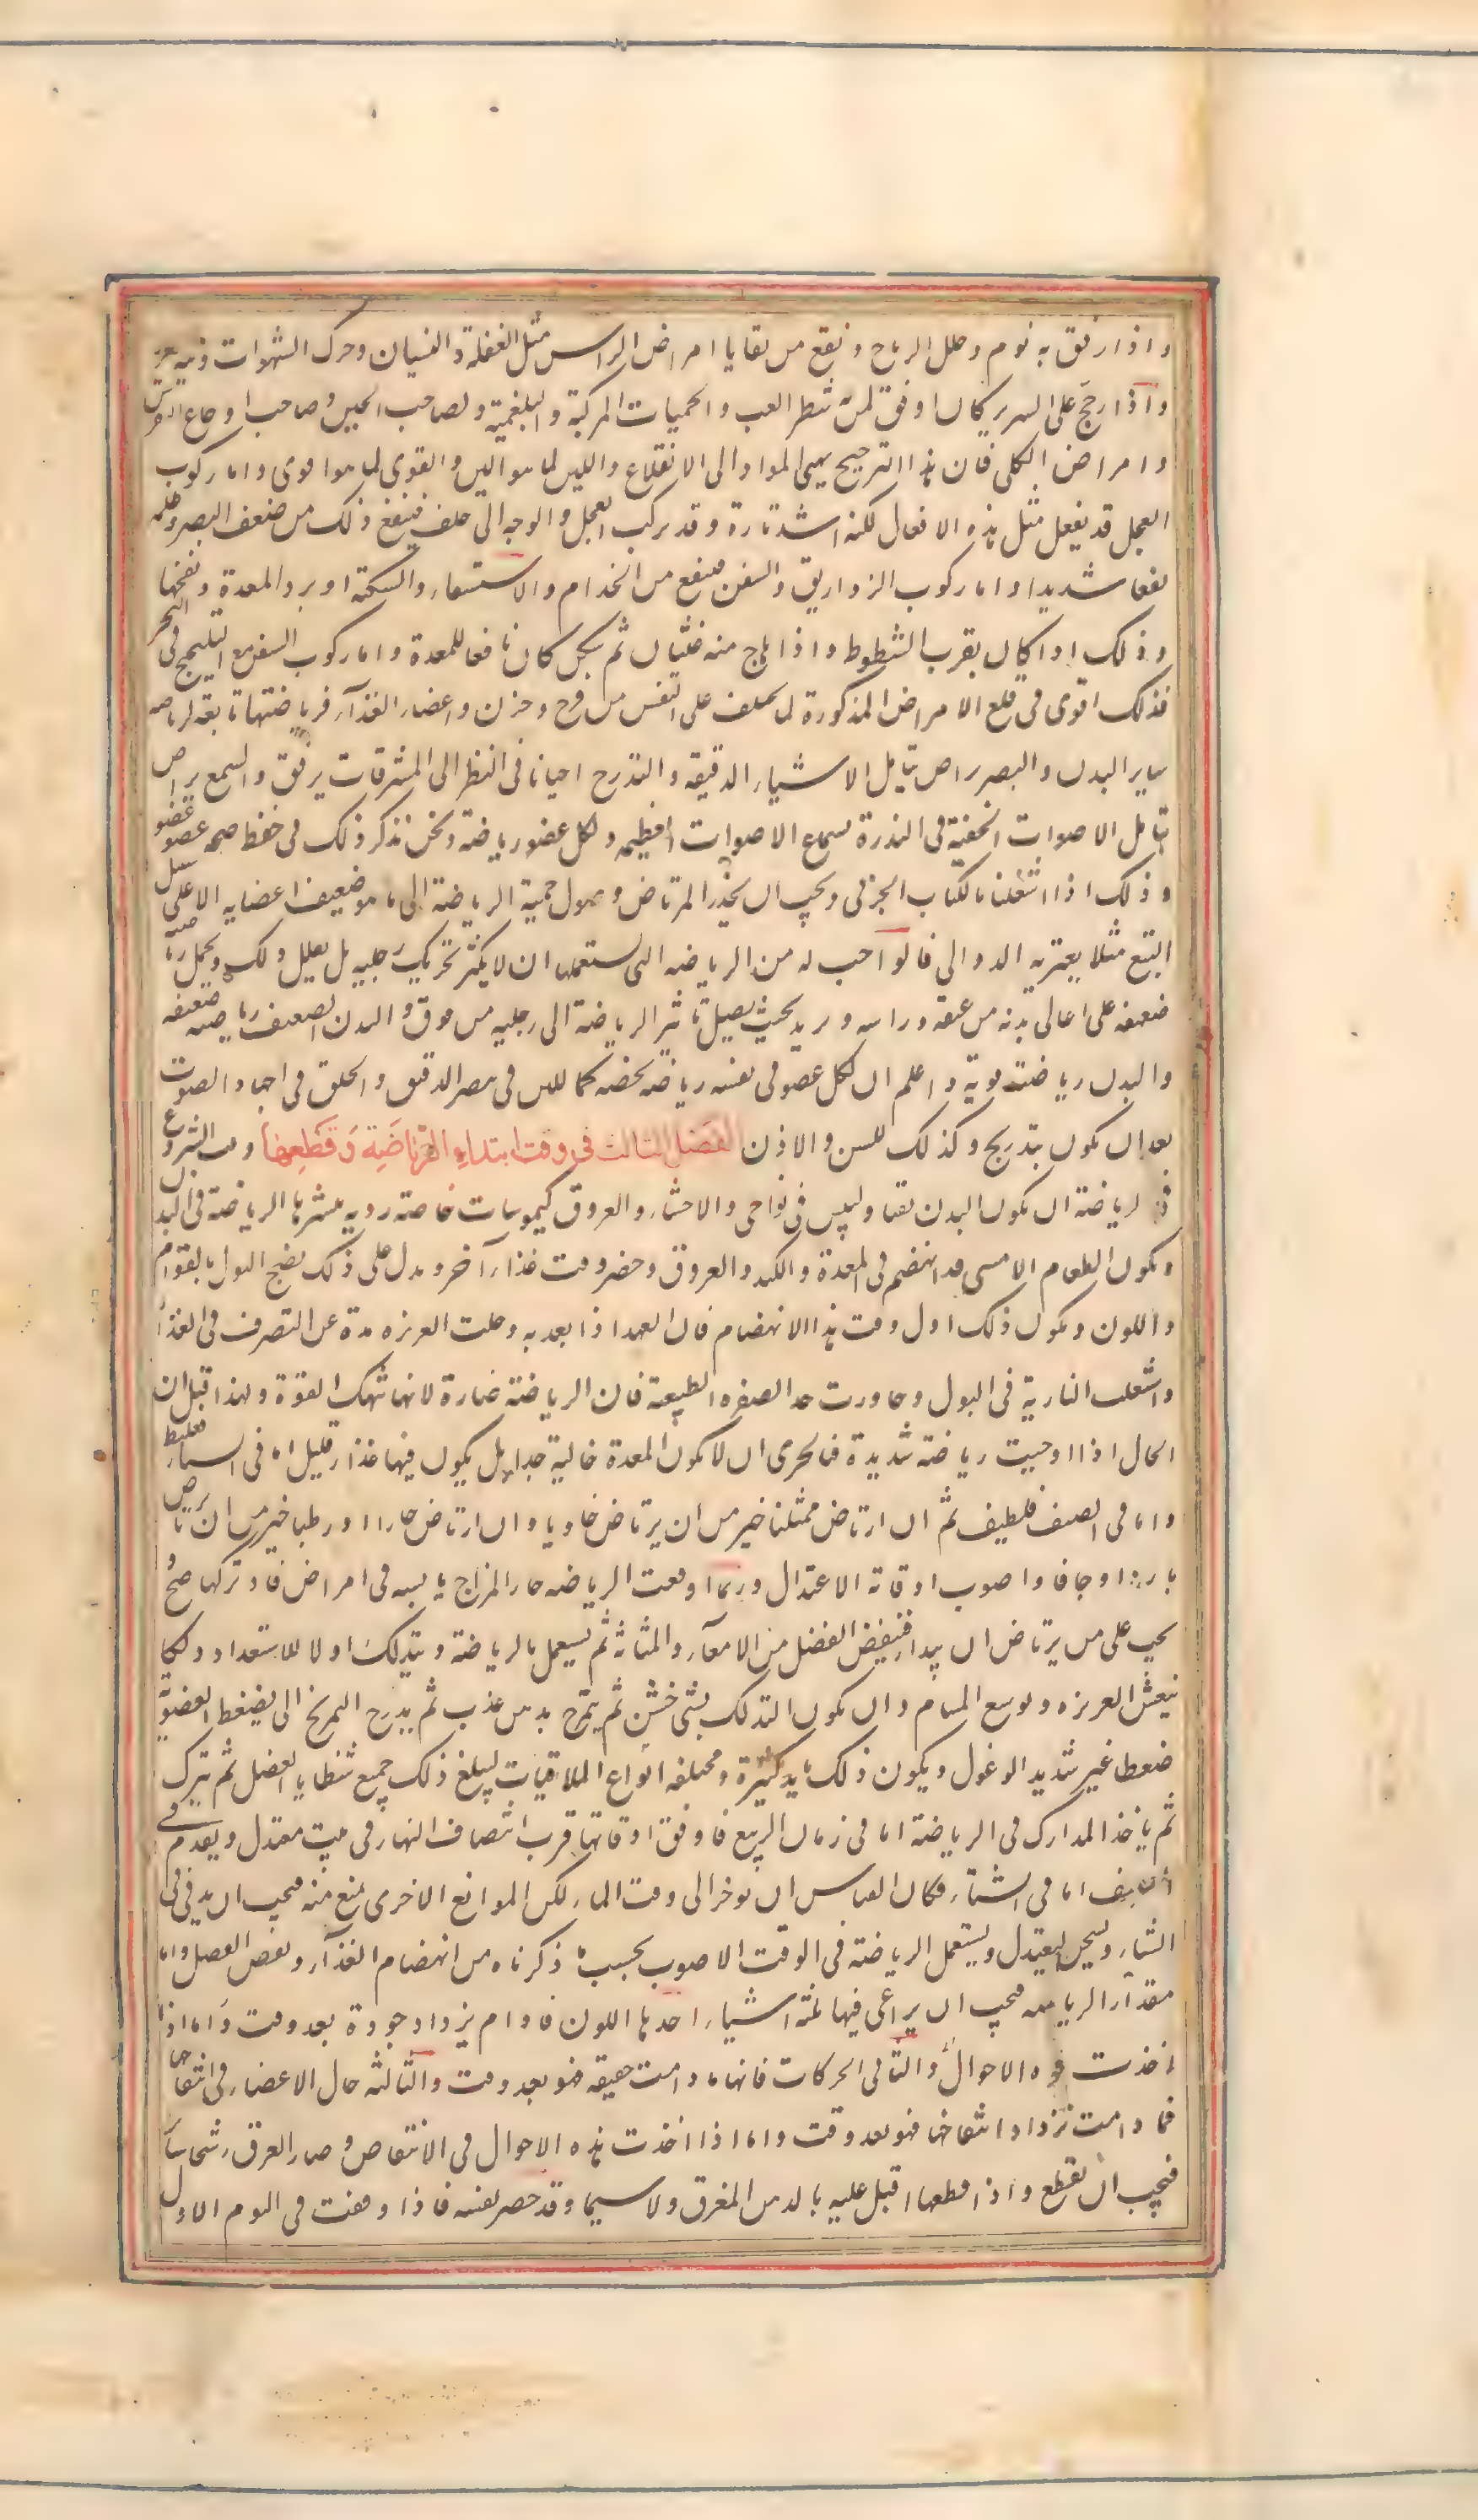 واذا رفق به نوم وحلل الرياح ونفع من بقايا امراض الراس مثل الغفلة والنسيان وحرك الشهوات ونبه
واذا رجح على السرير كان اوفق لمن به شطر الغب والحميات المركبة والبلغمية ولصاحب الحبن وصاحب اوجاع النقرس
وامراض الكلى فان هذا الترجيح يهيئ المواد الى الانقلاع واللين لما هو الين والقوى لما هو اقوى واما ركوب
العجل قد يفعل مثل هذه الافعال لكنه اشد اثارة وقد يركب العجل والوجه الى خلف فينفع ذلك من ضعف البصر وظلمته
نفعا شديدا واما ركوب الزواريق والسفن فينفع من الجذام والاستسقاء والسكتة او برد المعدة ونفخها
وذلك اذا كان بقرب الشطوط واذا هاج منه غثيان ثم سكن كان نافعا للمعدة واما ركوب السفن مع التلجيج في البحر
فذلك اقوى في قلع الامراض المذكورة لما يختلف على النفس من فرح وحزن واعضاء الغذآء فرياضتها تابعة لرياضة
ساير البدن والبصر يراض بتامل الاشياء الدقيقة والتدرج احيانا في النظر الى المشرقات برفق والسمع يراض
بتامل الاصوات الخفية في الندرة بسماع الاصوات العظيمة ولكل عضو رياضة ونحن نذكر ذلك في حفظ صحة عضو عضو
وذلك اذا اشتغلنا بالكتاب الجزئي ويجب ان يحذر المرتاض وصول حمية الرياضة الى ما هو ضعيف اعضايه الا على سبيل
التبع مثلا يعتريه الدوالي فالواجب له من الرياضة التي يستعملها ان لا يكثر تحريك رجليه بل يقلل ذلك ويحمل رياضته
ضعفه على اعالي بدنه من عنقه وراسه ويديه بحيث يصل تاثير الرياضة الى رجليه من فوق والبدن الضعيف رياضته ضعيفة
والبدن رياضته قوية واعلم ان لكل عضو في نفسه رياضة تخصه كما للعين في تبصر الدقيق والحلق في اجهاد الصوت
بعد ان يكون بتدريج وكذلك للسن والاذن الفصل الثالث في وقت ابتداء الرياضة وقطعها وقت الشروع
في الرياضة ان يكون البدن نقيا وليس في نواحي والاحشاء والعروق كيموسات خاصة ردية ينشرها الرياضة في البدن
ويكون الطعام الامسي قد انهضم في المعدة والكبد والعروق وحضر وقت غذاء آخر ويدل على ذلك نضج البول بالقوام
واللون ويكون ذلك اول وقت هذا الانهضام فان العهد اذا بعد به وخلت الغريزة مدة عن التصرف في الغذآ
واشتعلت النارية في البول وجاورت حد الصفرة الطبيعة فان الرياضة ضارة لانها تنهك القوة ولهذا قيل ان
الحال اذا اوجبت رياضة شديدة فبالحري ان لا تكون المعدة خالية جدا بل يكون فيها غذاء قليل اما في الشتاء فغليظ
واما في الصيف فلطيف ثم ان ارتاض ممتلئا خير من ان يرتاض خاويا وان ارتاض حارا او رطبا خير من ان يرتاض
باردا او جافا واصوب اوقاته الاعتدال وربما اوقعت الرياضة حار المزاج يابسه في امراض فاذا تركها صح و
يجب على من يرتاض ان يبدا فينفض الفضل من الامعآء والمثانة ثم يستعمل بالرياضة ويتدلك اولا للاستعداد دلكا
ينعش الغريزة ويوسع المسام وان يكون التدلك بشئ خشن ثم يتمرخ بدهن عذب ثم يدرج التمريخ الى ان يضغط العضو به
ضغطا غير شديد الوغول ويكون ذلك بايد كثيرة ومختلفة انواع الملاقيات ليبلغ ذلك جميع شظايا العضل ثم يترك
ثم ياخذ المدارك في الرياضة اما في زمان الربيع فاوفق اوقاتها قرب انتصاف النهار في بيت معتدل ويقدم في
الصيف اما في الشتاء فكان القياس ان يوخر الى وقت المساء لكن الموانع الاخرى تمنع منه فيجب ان يدفئ في
الشتاء ويسخن ليعتدل ويستعمل الرياضة في الوقت الاصوب بحسب ما ذكرناه من انهضام الغذآء ونفض الفضل واما
مقدار الرياضة فيجب ان يراعى فيها ثلثة اشياء احدها اللون فما دام يزداد جودة بعد وقت واما اذا
اخذت هذه الاحوال والثاني الحركات فانها ما دامت خفيفة فهو بعد وقت والثالثة حال الاعضاء في انتفاخها
فما دامت تزداد انتفاخا فهو بعد وقت واما اذا اخذت هذه الاحوال في الانتقاص وصار العرق رشحا سائلا
فيجب ان يقطع واذا قطعها اقبل عليه بالدهن المغرق ولا سيما وقد حصر نفسه فاذا وقفت في اليوم الاول